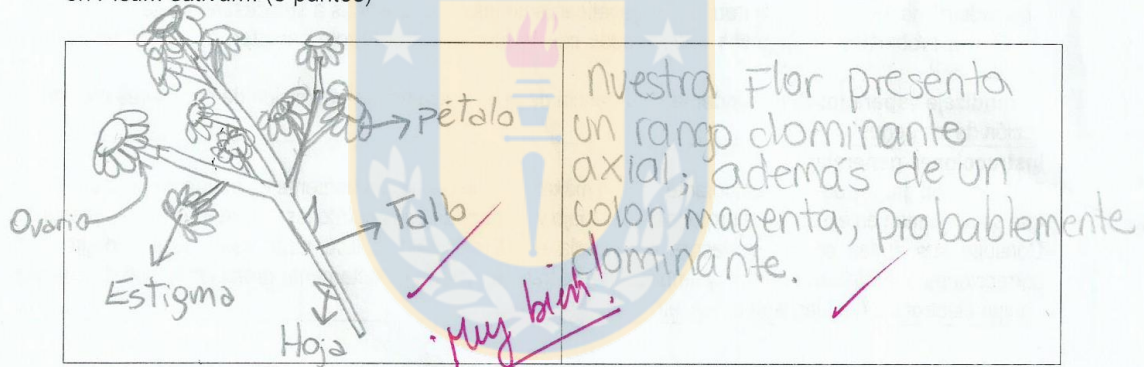 en Pisum sativum. (5 puntos)
pétalo
Ovario
Tallo
Estigma
Hoja
¡Muy bien!
nuestra Flor presenta
un rango dominante
axial; además de un
color magenta, probablemente
dominante.